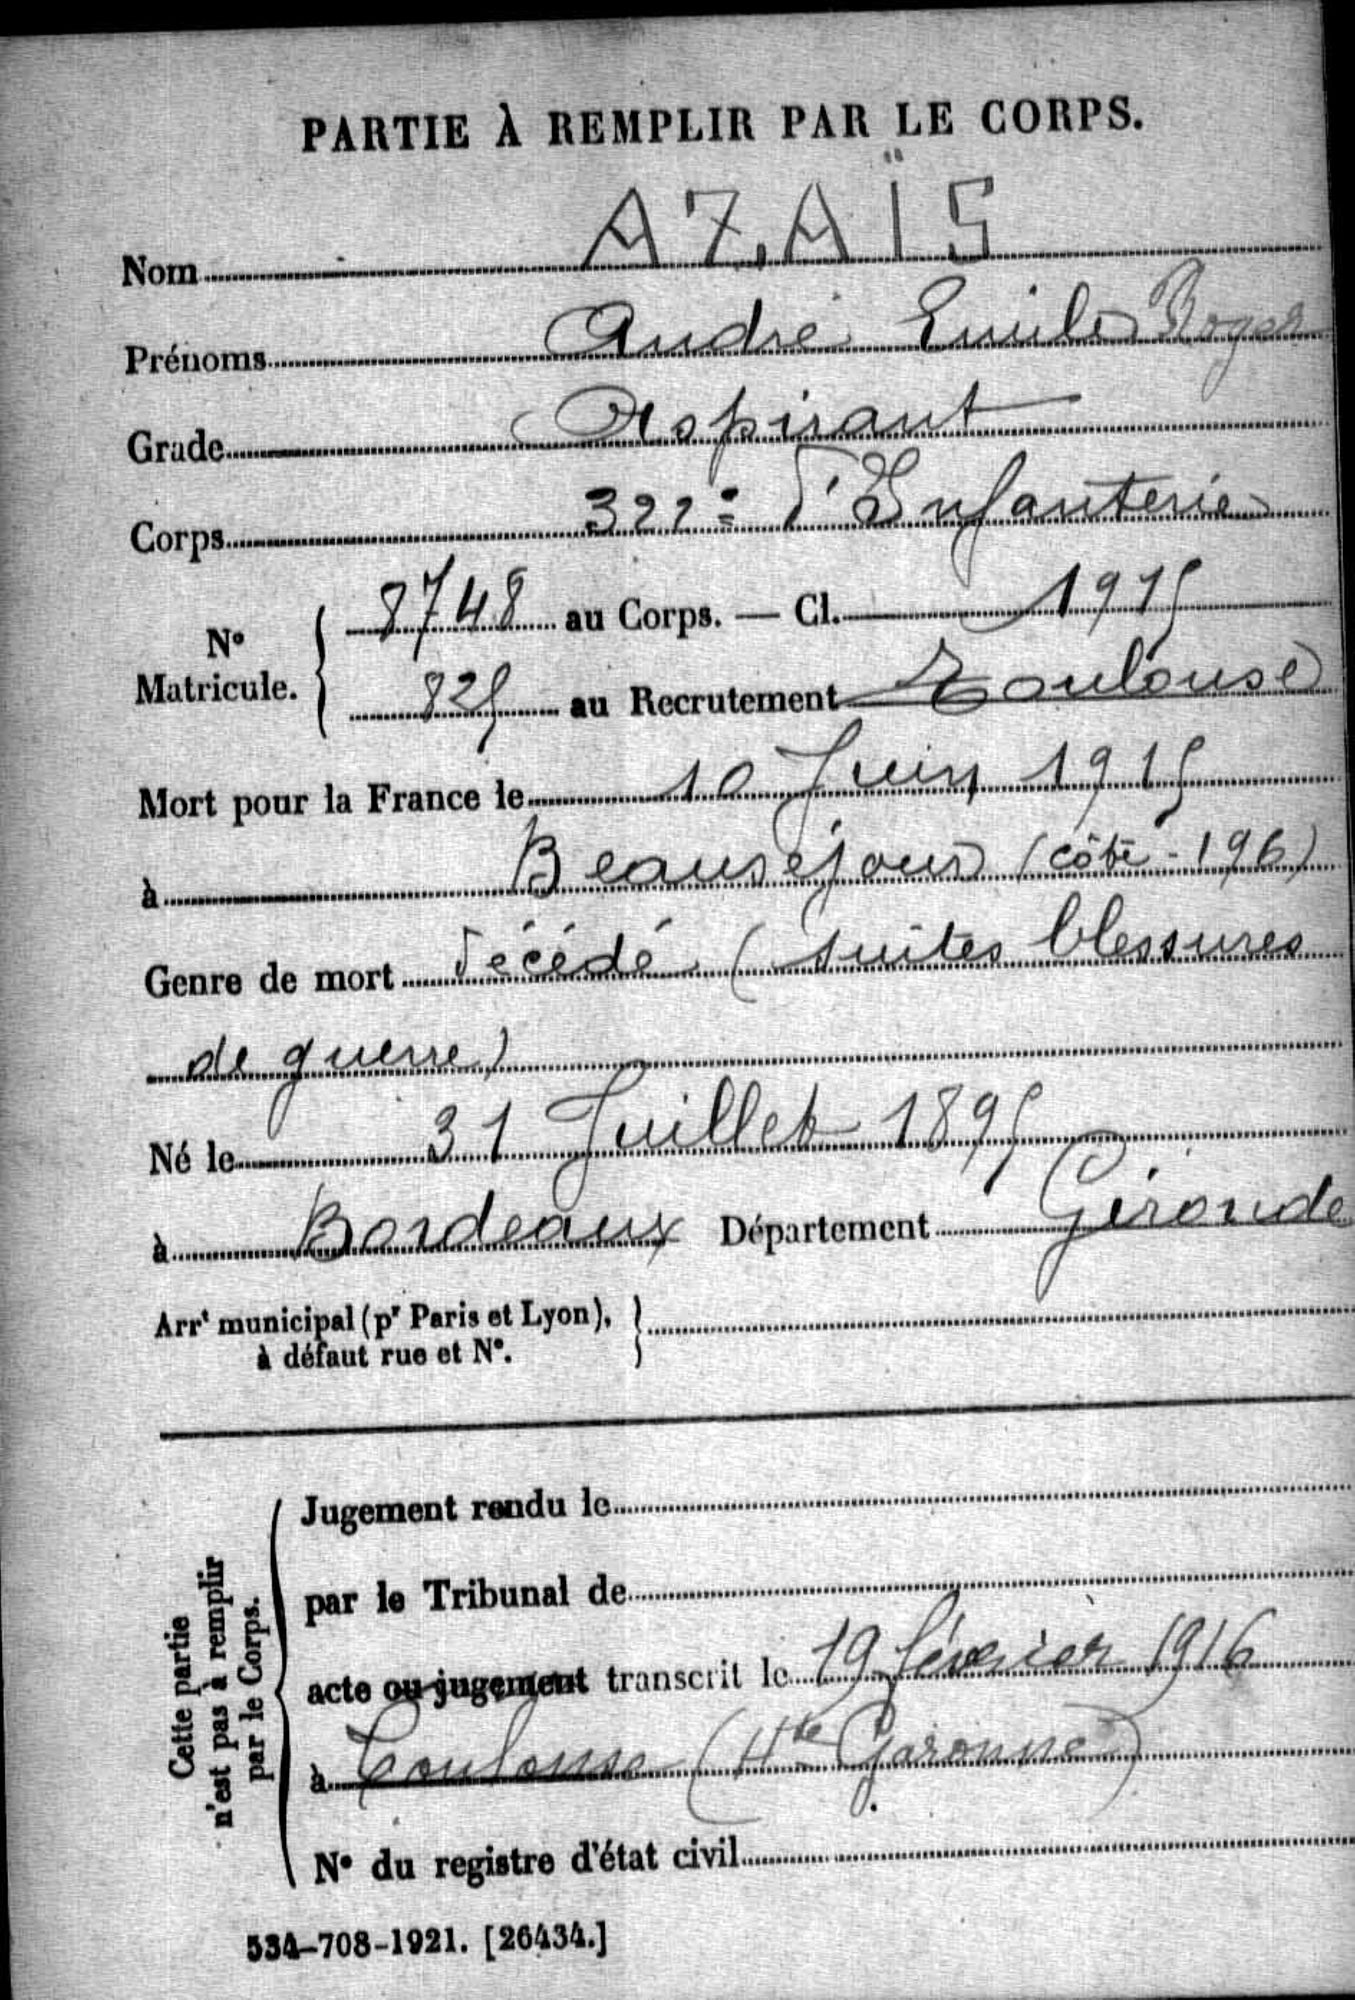 PARTIE À REMPLIR PAR LE CORPS.
Nom AZAÏS
Prénoms André Emile Roger
Grade Aspirant
Corps 322e d'Infanterie
N° Matricule. 8748 au Corps. — Cl. 1915
825 au Recrutement Toulouse
Mort pour la France le 10 Juin 1915
à Beauséjour (côte - 196)
Genre de mort décédé (suites blessures
de guerre)
Né le 31 Juillet 1895
à Bordeaux Département Gironde
Arrt municipal (pr Paris et Lyon),
à défaut rue et N°.
Cette partie
n'est pas à remplir
par le Corps.
Jugement rendu le
par le Tribunal de
acte ou jugement transcrit le 19 février 1916
à Toulouse (Hte Garonne)
N° du registre d'état civil
534-708-1921. [26434.]